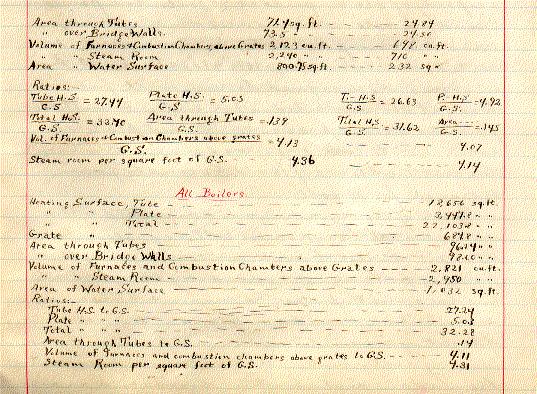 Area through Tubes 71.4 sq. ft. 24.84
" over Bridge Walls 73.5 24.50
Volume of Furnaces & Combustion Chambers above Grates 2,123 cu. ft. 698 cu. ft.
" " Steam Room 2,240 " " 710 " "
Area " Water Surface 800.75 sq. ft. 232 sq "
Ratios:
Tube H.S. / G.S. = 27.44 Plate H.S. / G.S. = 5.03 T.- H.S / G.S. = 26.63 P.- H.S / G.S. = 4.92
Total H.S. / G.S. = 32.40 Area through Tubes / G.S. = .139 Total H.S. / G.S. = 31.62 Area / G.S. = .145
Vol. of Furnaces & Combustion Chambers above grates / G.S. = 4.13 4.07
Steam room per square foot of G.S. 4.36 4.14
All Boilers
Heating Surface, Tube 18,656 sq. ft.
" " Plate 3,447.8 " "
" " Total 22,103.8 " "
Grate " 684.8 " "
Area through Tubes 96.24 " "
" over Bridge Walls 98.00 " "
Volume of Furnaces and Combustion Chambers above Grates 2,821 cu. ft.
" " Steam Room 2,950 " "
Area of Water Surface 1,032 sq. ft.
Ratios:-
Tube H.S. to G.S. 27.24
Plate " " " 5.03
Total " " " 32.28
Area through Tubes to G.S. .14
Volume of furnaces and combustion chambers above grates to G.S. 4.11
Steam Room per square foot of G.S. 4.31